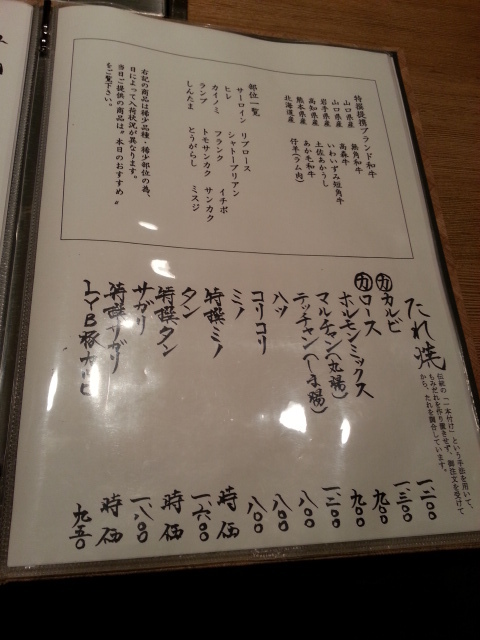 特撰提携ブランド和牛
山口県産 無角和牛
山口県産 高森牛
岩手県産 いわいずみ短角牛
高知県産 土佐あかうし
熊本県産 あか毛和牛
北海道産 仔羊(ラム肉)
部位一覧
サーロイン リブロース イチボ
ヒレ シャトーブリアン
カイノミ フランク サンカク
ランプ トモサンカク ミスジ
しんたま とうがらし
右記の商品は稀少品種・稀少部位の為、
日によって入荷状況が異なります。
当日ご提供の商品は〝本日のおすすめ〟
をご覧下さい。
たれ焼
伝統の「一本付け」という手法を用いて、
もみだれを作り置きせず、御注文を受けて
から、たれを調合しています。
カルビ 一二〇〇
ロース 一三〇〇
ホルモンミックス 九〇〇
マルチャン(丸腸) 九〇〇
テッチャン(しま腸) 一二〇〇
ハツ 八〇〇
コリコリ 八〇〇
ミノ 八〇〇
特撰ミノ 時価
タン 一六〇〇
特撰タン 時価
サガリ 一八〇〇
特撰サガリ 時価
LYB豚カルビ 九五〇